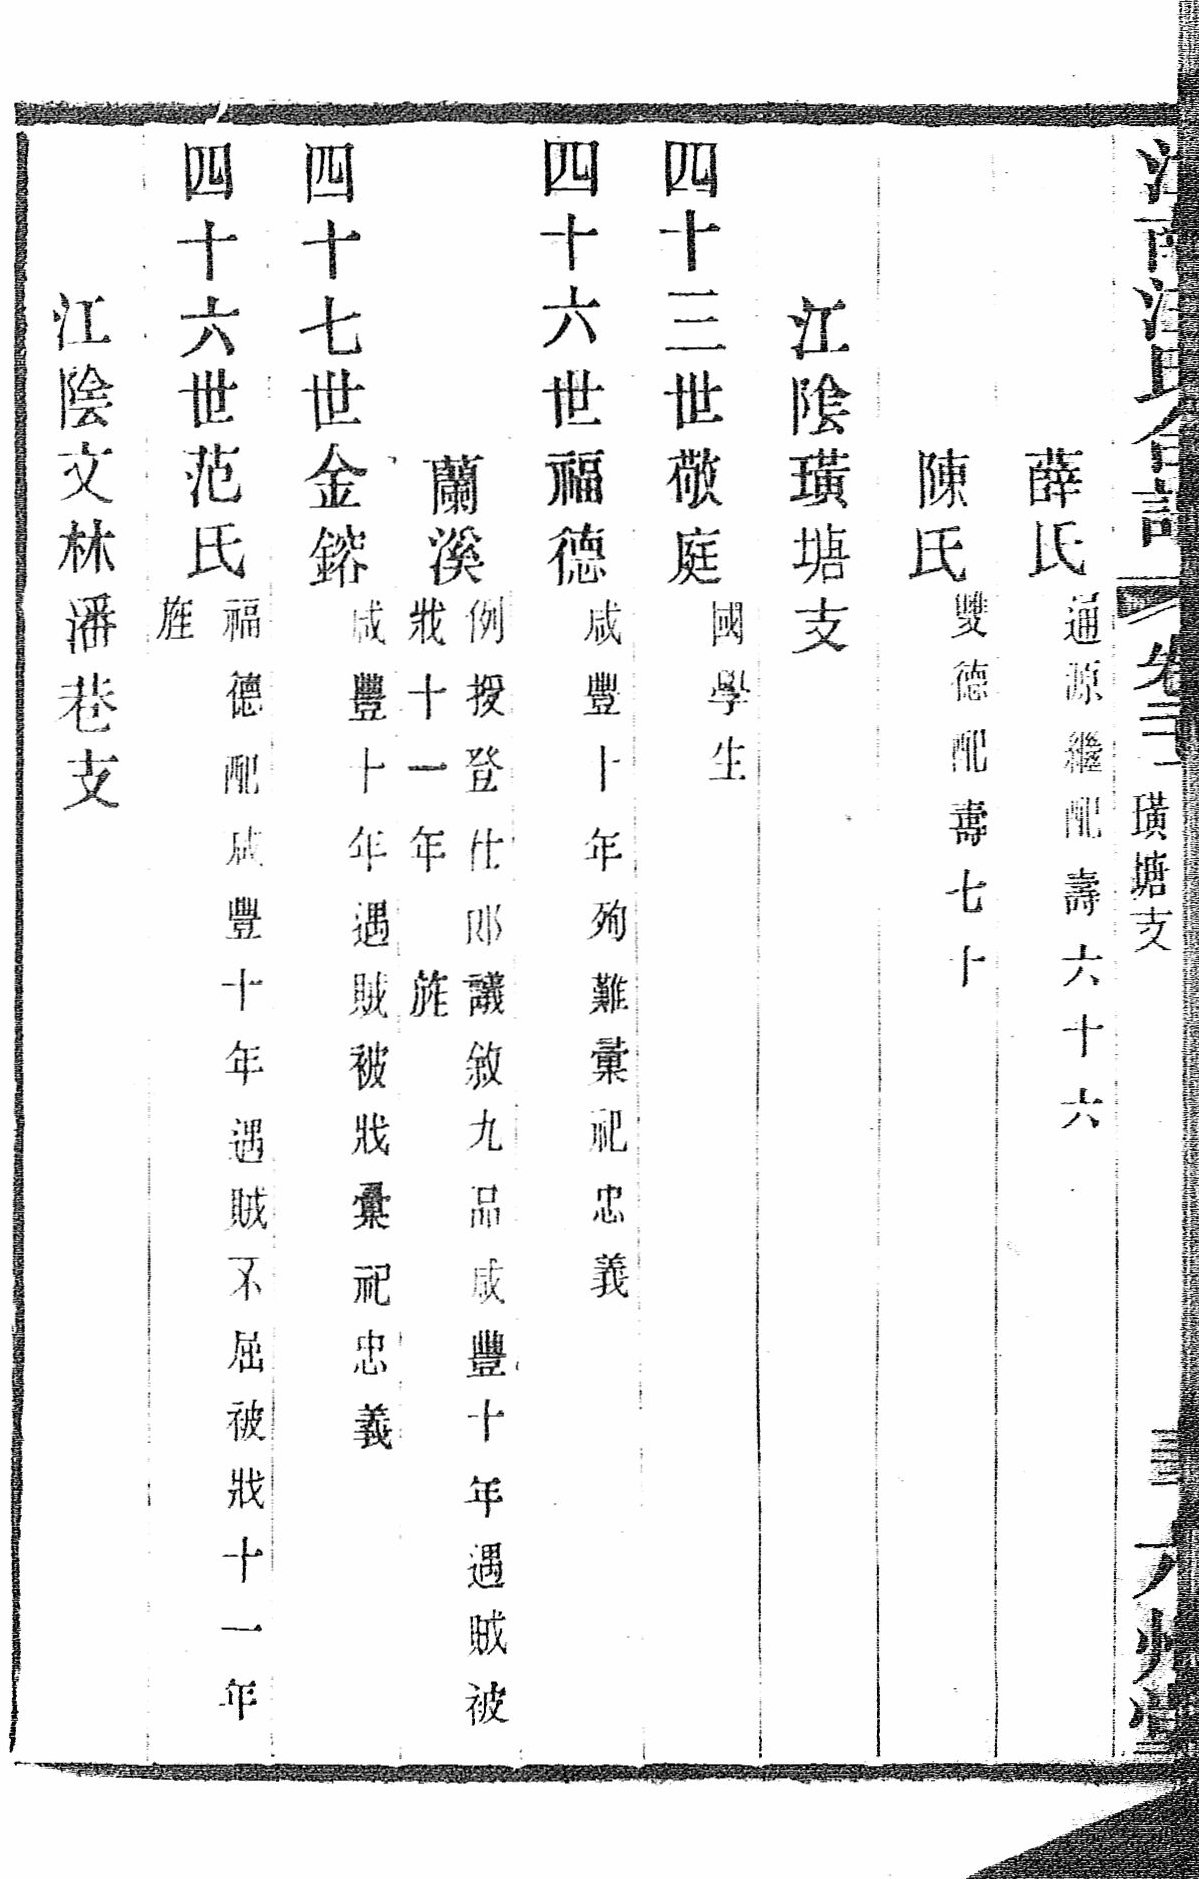 江南汪氏合譜 卷三 璜塘支 六州堂
薛氏 通源繼配壽六十六
陳氏 雙德配壽七十
江陰璜塘支
四十三世敬庭 國學生
四十六世福德 咸豐十年殉難彙祀忠義
蘭溪 例授登仕郎議敘九品咸豐十年遇賊被
戕十一年 旌
四十七世金鎔 咸豐十年遇賊被戕彙祀忠義
四十六世范氏 福德配咸豐十年遇賊不屈被戕十一年
旌
江陰文林潘巷支